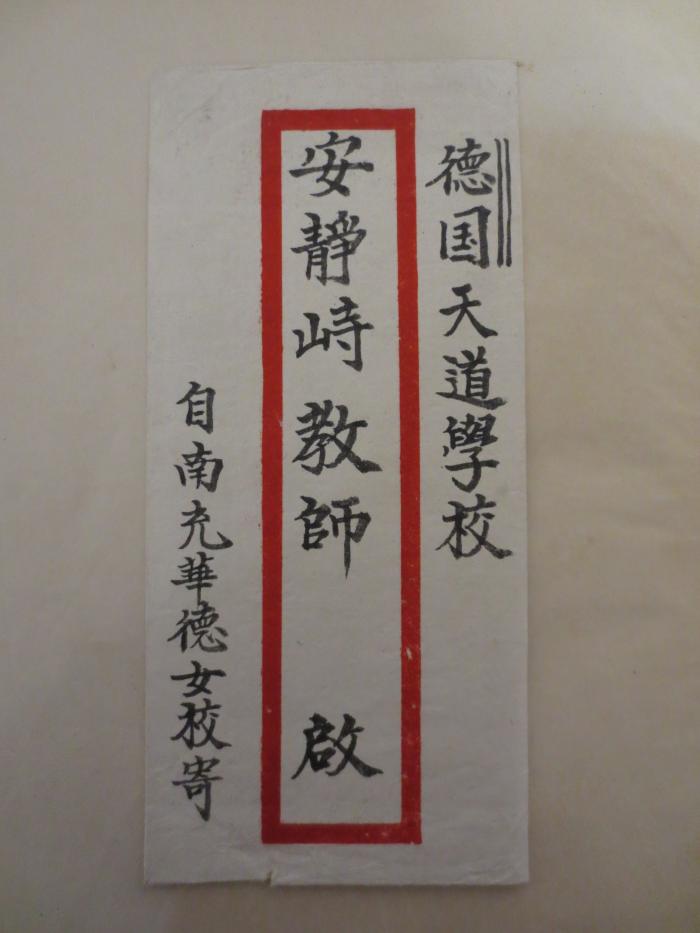 德国天道學校
安靜峙教師 啟
自南充華德女校寄